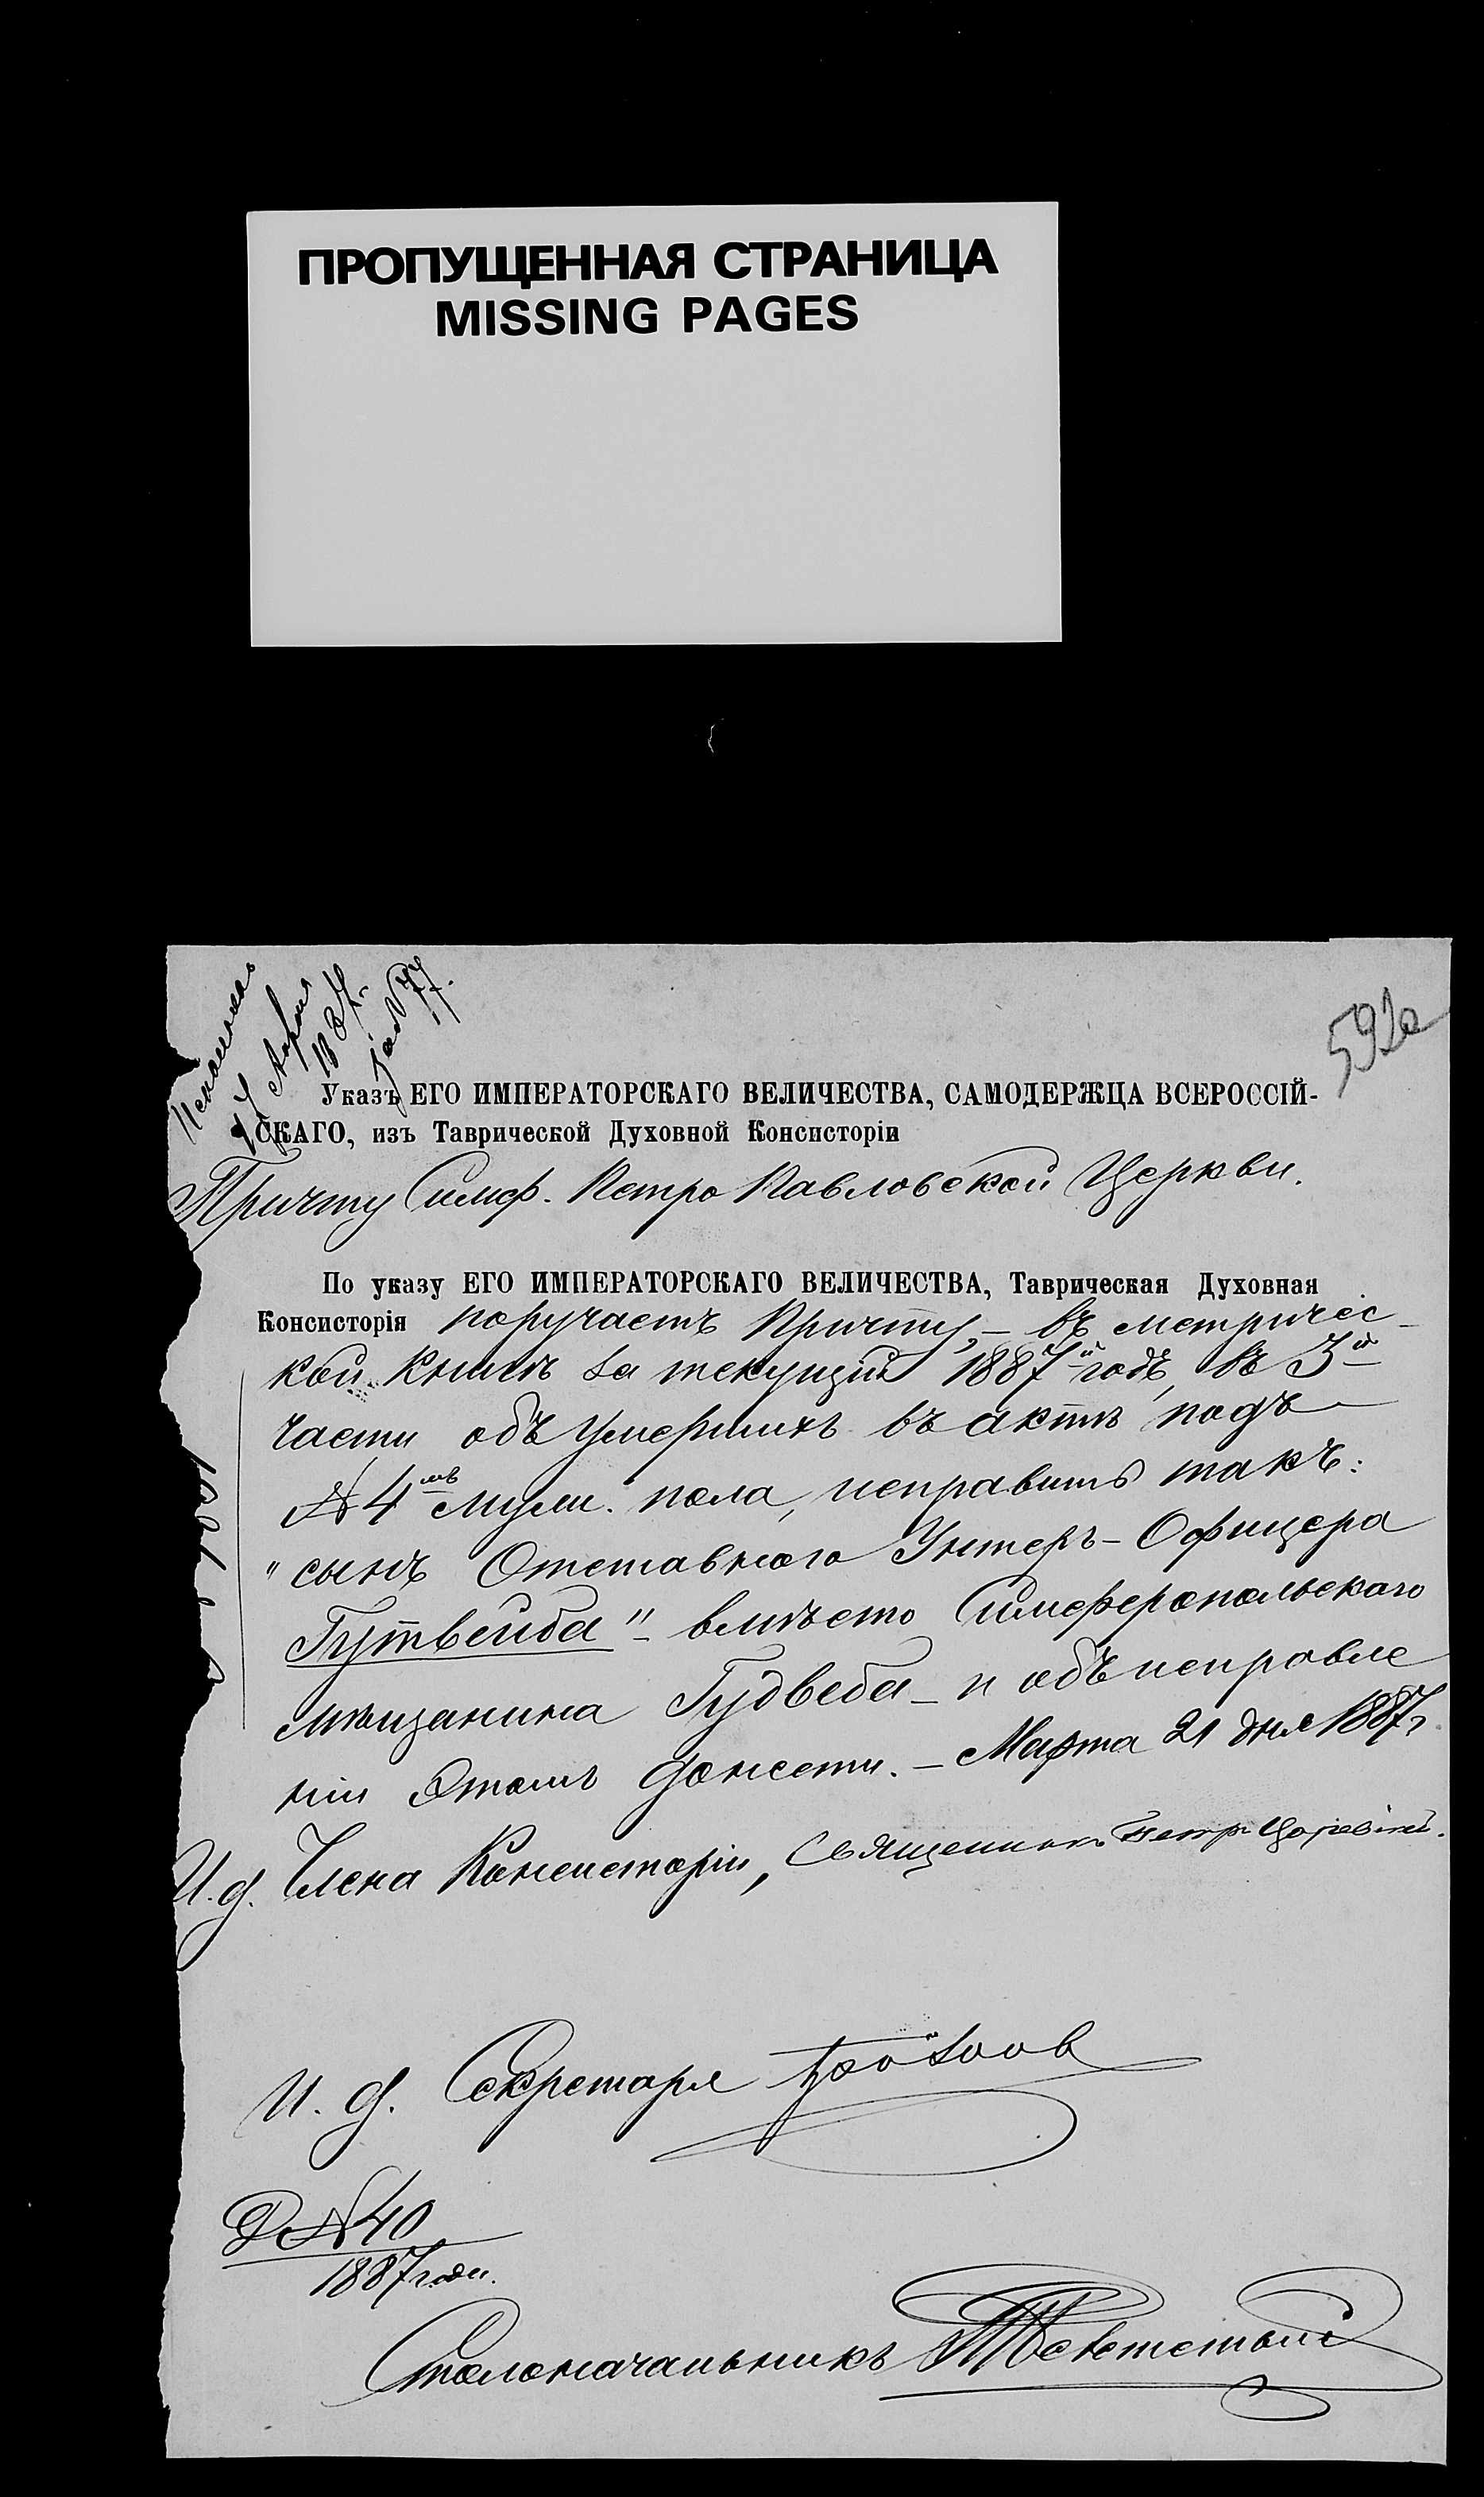 ПРОПУЩЕННАЯ СТРАНИЦА
MISSING PAGES
592а
Апрѣля
1887г.
за № 77.
Указъ ЕГО ИМПЕРАТОРСКАГО ВЕЛИЧЕСТВА, САМОДЕРЖЦА ВСЕРОССІЙ-
СКАГО, изъ Таврической Духовной Консисторіи
Причту Симф. Петро Павловской Церкви.
По указу ЕГО ИМПЕРАТОРСКАГО ВЕЛИЧЕСТВА, Таврическая Духовная
Консисторія поручаетъ Причту, – въ метричес-
кой книгѣ за текущій 1887й годъ, въ 3й
части объ умершихъ въ актѣ подъ
№ 4мъ муж. пола, исправить такъ:
"сынъ Отставного Унтеръ-Офицера
Гутвейба" – вмѣсто Симферопольскаго
мѣщанина Гудвеба – и объ исправле
ніи этомъ донести. – Марта 21 дня 1887г.
И. д. Члена Консисторіи, Священникъ Петръ
И. д. Секретаря
Д № 40
1887 года.
Столоначальникъ